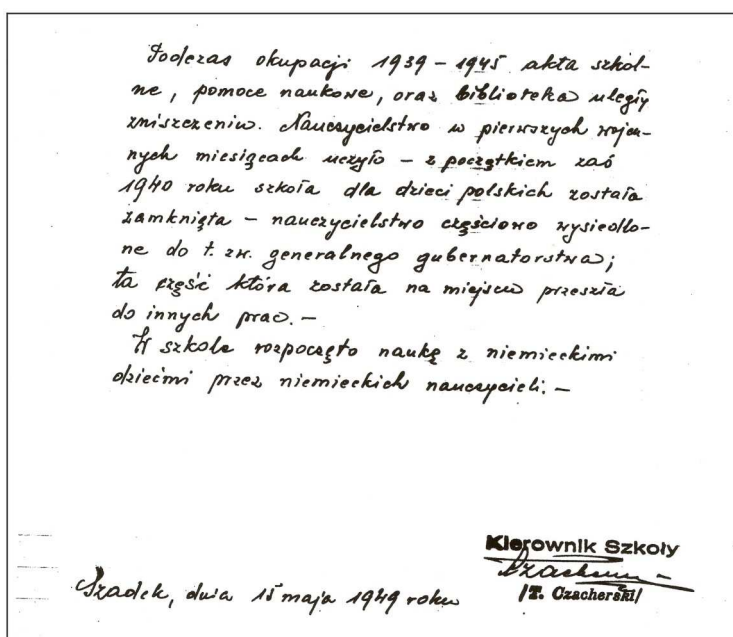 Podczas okupacji 1939 – 1945 akta szkol-
ne, pomoce naukowe, oraz biblioteka uległy
zniszczeniu. Nauczycielstwo w pierwszych wojen-
nych miesiącach uczyło – z początkiem zaś
1940 roku szkoła dla dzieci polskich została
zamknięta – nauczycielstwo częściowo wysiedlo-
ne do t. zw. generalnego gubernatorstwa;
ta część która została na miejscu przeszła
do innych prac. –
W szkole rozpoczęto naukę z niemieckimi
dziećmi przez niemieckich nauczycieli. –
Kierownik Szkoły
/T. Czacherski/
Szadek, dnia 15 maja 1949 roku